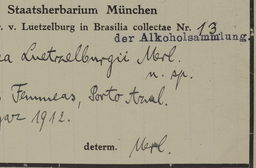 Staatsherbarium München
. v. Luetzelburg in Brasilia collectae Nr. 13
der Alkoholsammlung.
ea Luetzelburgii Merl.
n. sp.
Porto Azul.
1912.
determ. Merl.